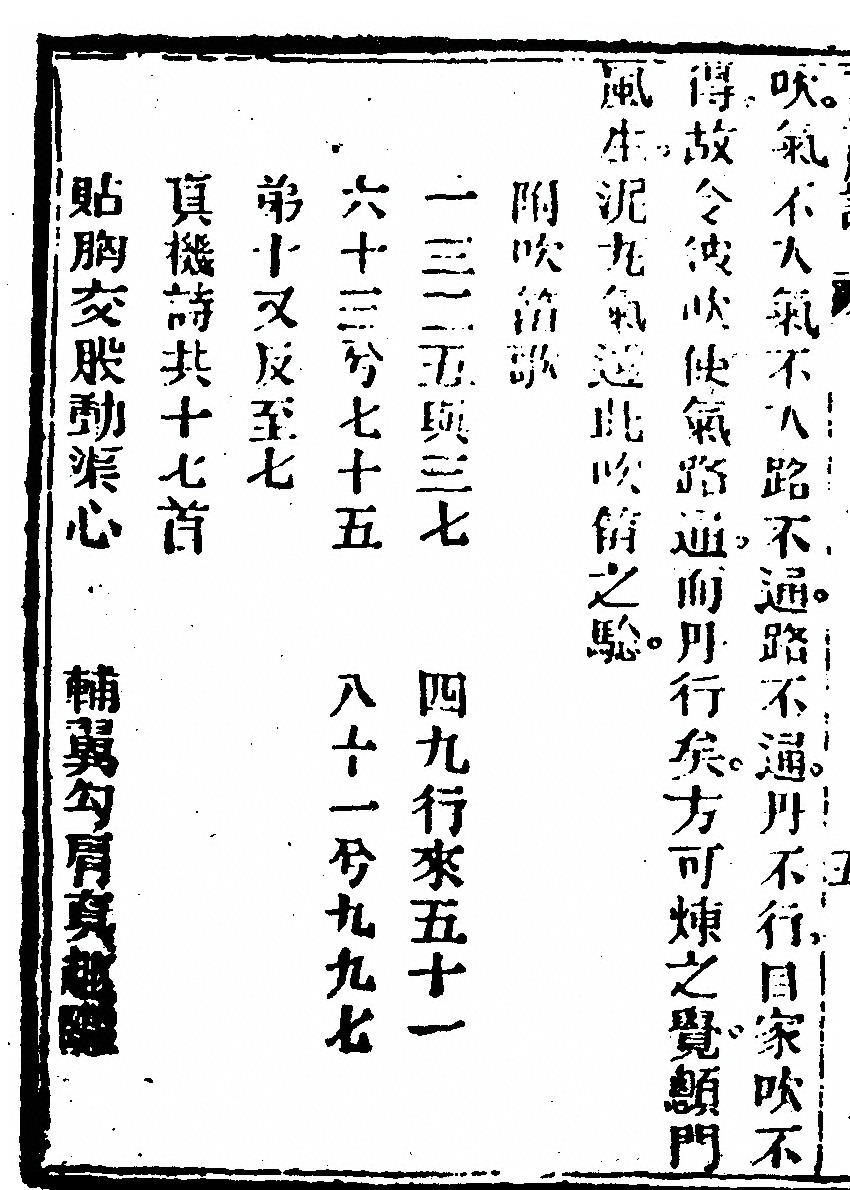 吹。氣不入氣不入路不通。路不通。丹不行自家吹不
得故令彼吹使氣路通而丹行矣。方可煉之覺顖門
風生泥丸氣過此吹笛之驗。
附吹笛歌
一三二五與三七　四九行來五十一
六十三兮七十五　八十一兮九九七
弟十又反至七
真機詩共十七首
貼胸交股動渠心　輔翼勾肩真趣